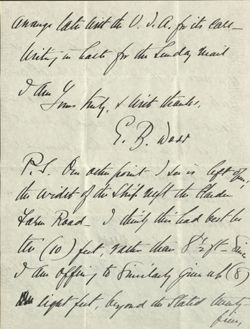 arrange later with the O. J. A. for its Call
Writing in haste for the Sunday Mail
I am
Yours truly, & with thanks,
E. B. West
P.S. One other point I see is left open,
the width of the Strip next the Garden
Farm Road — I think this had best be
ten (10) feet, rather than 8½ ft — Since
I am offering to Similarly give up (8)
eight feet, beyond the Stated twenty
five